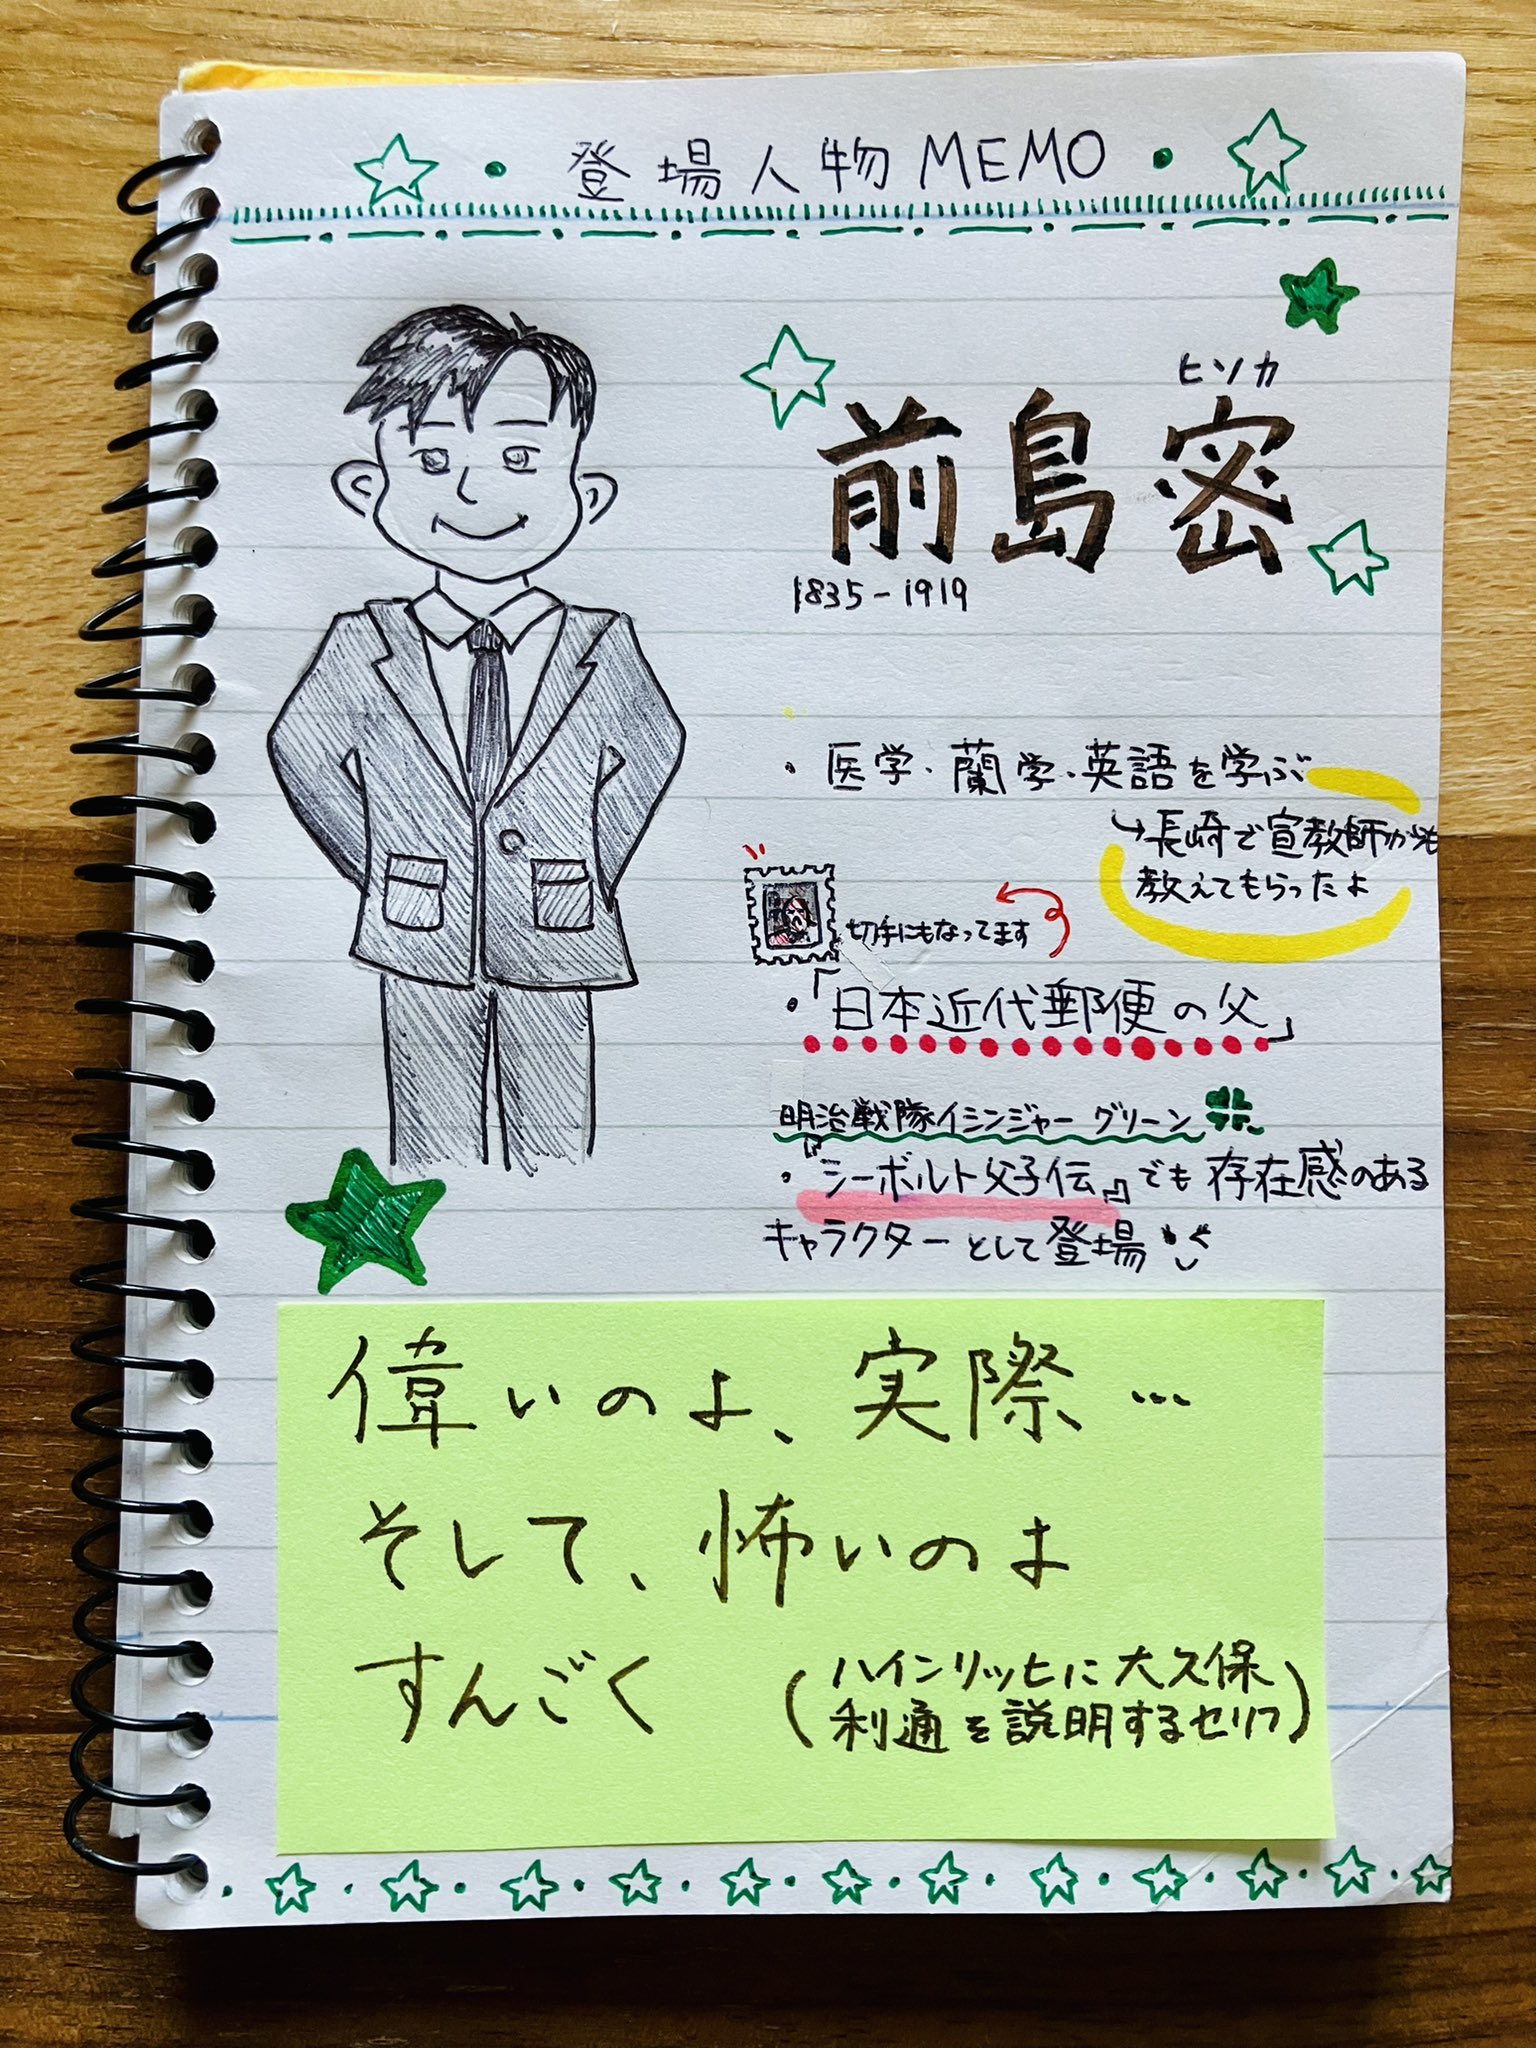 登場人物MEMO
ヒソカ
前島密
1835-1919
・医学・蘭学・英語を学ぶ
↳長崎で宣教師からも
教えてもらったよ
切手にもなってます
・「日本近代郵便の父」
明治戦隊イシンジャー グリーン
・『シーボルト父子伝』でも存在感のある
キャラクターとして登場
偉いのよ、実際…
そして、怖いのよ
すんごく
(ハインリッヒに大久保
利通を説明するセリフ)